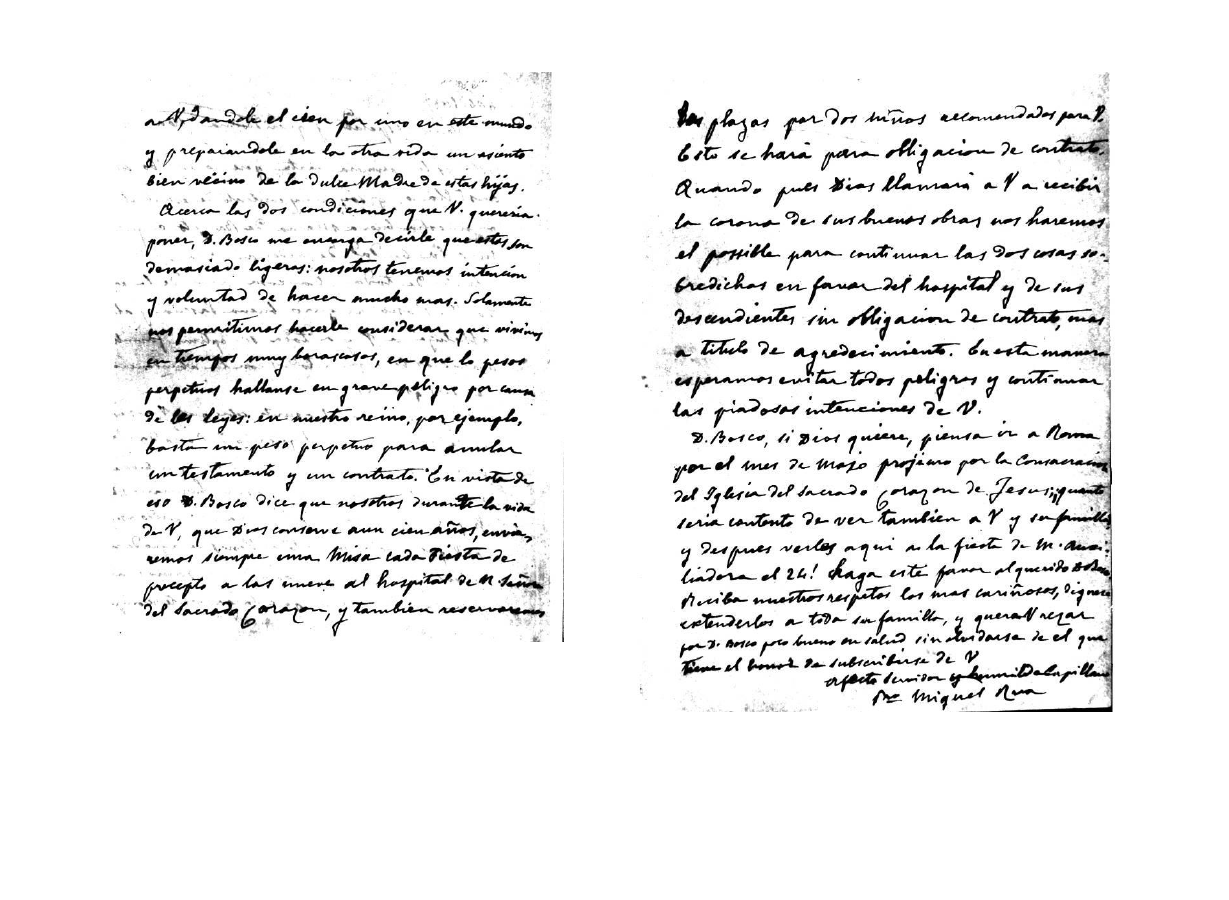 a V, dandole el cien por uno en este mundo
y preparandole en la otra vida un asiento
bien vécino de la dulce Madre de estas hijas.
Acerca las dos condiciones que V. quereria
poner, D. Bosco me encarga decirle que estas son
demasiado ligeras: nosotros tenemos intencion
y voluntad de hacer mucho mas. Solamente
nos permitimos hacerle considerar que vivimos
en tiempos muy borascosos, en que lo pesos
perpetuos hallanse en grave peligro por causa
de las leyes: en nuestro reino, por ejemplo,
basta un peso perpetuo para anular
un testamento y un contrato. En vista de
eso D. Bosco dice que nosotros durante la vida
de V, que Dios conserve aun cien años, envia-
remos siempre una Misa cada Fiesta de
precepto a las nueve al hospital de N. Señora
del Sacrado Corazon, y tambien reservaremos
los plazas por dos niños recomendados para V.
Esto se hará para obligacion de contrato.
Quando pues Dios llamará a V a recibir
la corona de sus buenas obras, nos haremos
el possible para continuar las dos cosas so-
bredichas en favor del hospital y de sus
descendientes sin obligacion de contrato, mas
a titulo de agredecimiento. En esta manera
esperamos evitar todos peligros y continuar
las piadosas intenciones de V.
D. Bosco, si Dios quiere, piensa ir a Roma
por el mes de Majo projcimo por la Consacracion
del Iglesia del Sacrado Corazon de Jesus; ¡quanto
seria contento de ver tambien a V y su familia
y despues verles aqui a la fiesta de M. Auxi-
liadora el 24! Haga este favor al querido D. Bosco
Reciba nuestros respetos los mas cariñosos, dignese
extenderlos a toda su familla, y quera V rezar
por D. Bosco poco bueno en salud sin olvidarse de el que
tiene el honor de subscribirse de V
afecto Servidor y humilde Capillano
Pro Miguel Rua